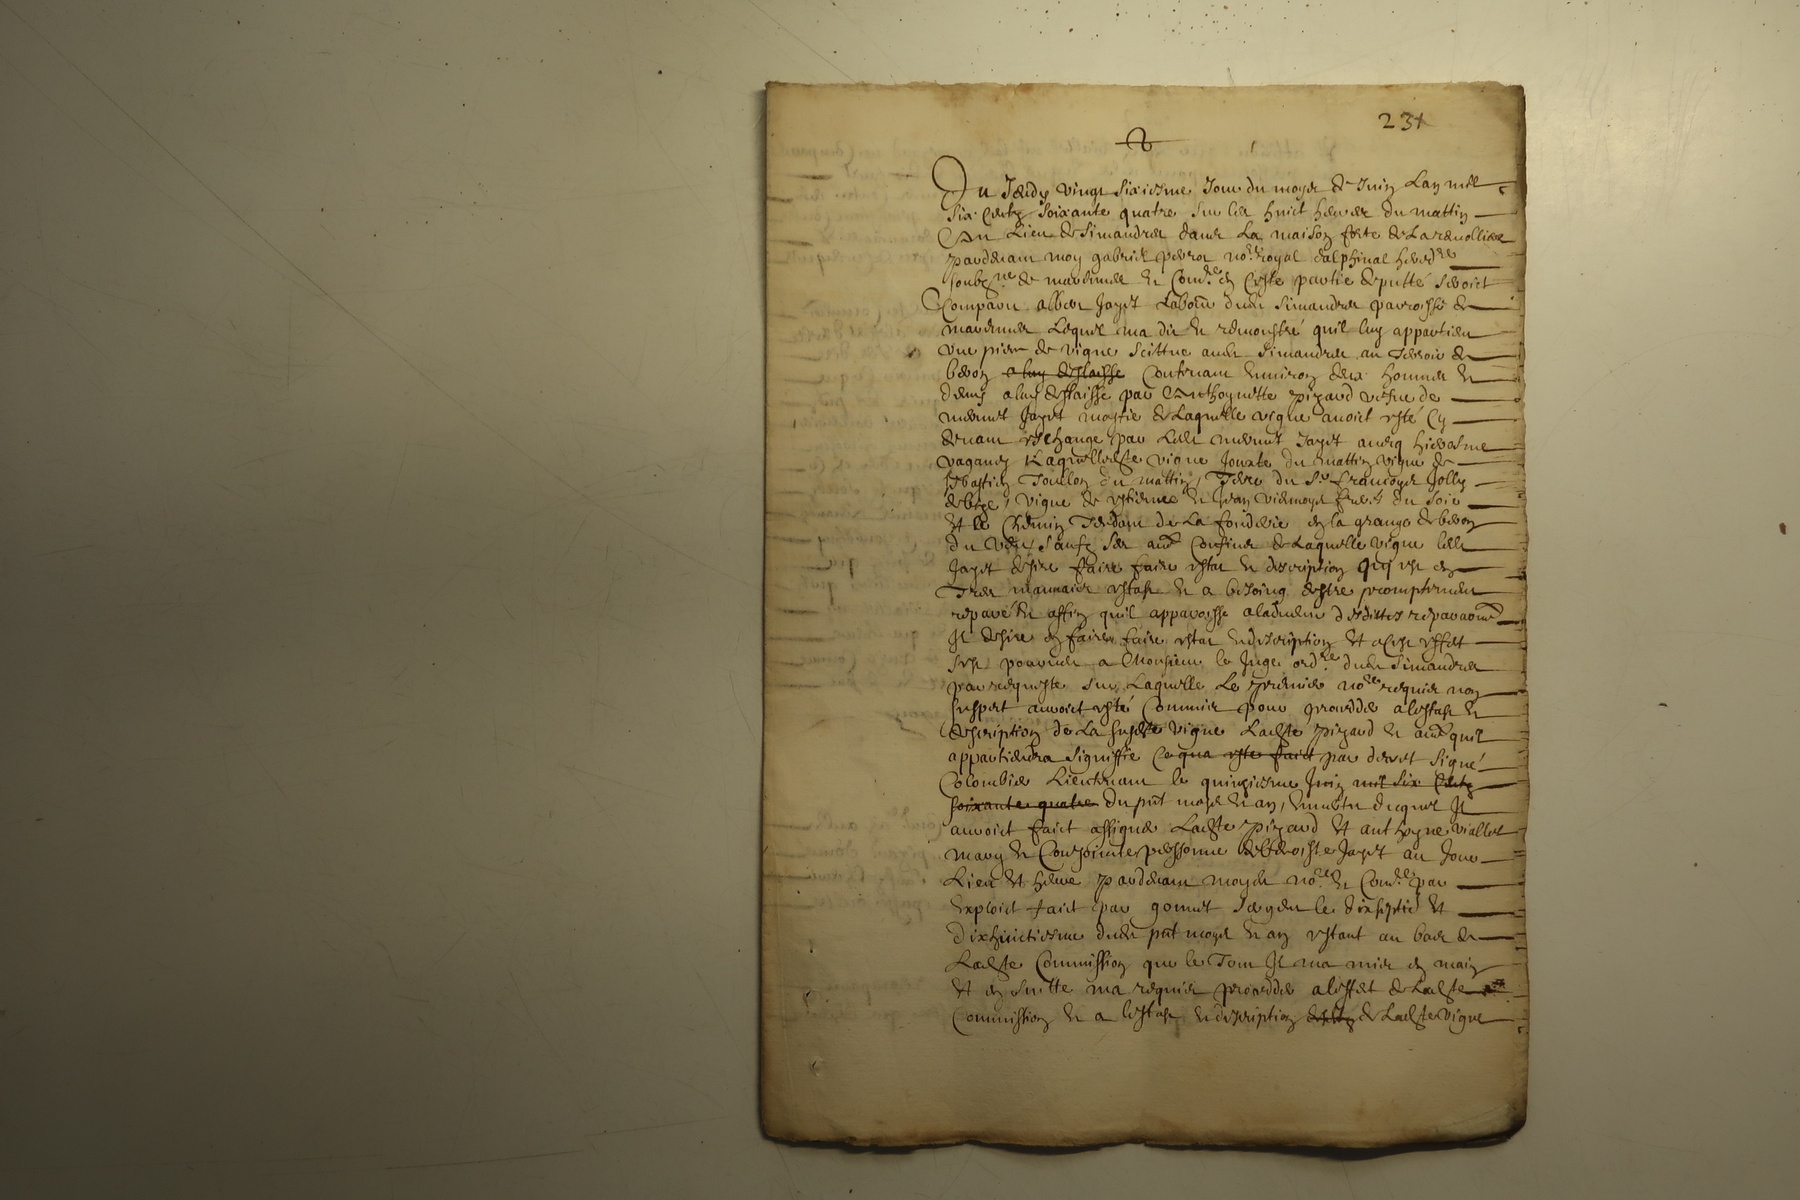 231
Du Jeudy vingt sixiesme Jour du moys de Juin Lan mil
six centz soixante quatre sur les huict heures du mattin
Au Lieu de Simandres dans La maison forte de
pardevant moy gabriel no.re royal dalphinal
de marennes et Com.re en Ceste partie deputté seroict
Comparu Jayet Labour dudit Simandres parroisse de
marennes Lequel ma dit et remonstré quil luy appartien
une piece de vigne scittue audit Simandres au Terroir de
bevon a luy deslaisse Contenant environ deux hommes et
demy a luy deslaisse par Anthoynette pizard vefve de
Jayet moytie de Laquelle vigne avoict esté Cy
devant eschange par Ledit Jayet audit hierosme
Laquelle dite vigne Jouxte du mattin vigne de
Sebastien du mattin, Terre du Sr Francoys Jolly
vigne de estienne et Jean freres du soir
et le Chemin Tendant de La fonderie en la grange de bevon
du vent sauf ses aues Confins de Laquelle vigne ledit
Jayet desire faire faire estat et description qui est en
Tres mauvais estat et a besoing destre promptement
reparé et affin quil apparoisse aladvenir desdittes reparaons
Il desire en faire faire estat et description et a cest effet
sest pourveu a Monsieur le Juge ord.re dudit Simandres
par requeste sur Laquelle Le premier no.re requis non
suspect auroict esté Commis pour proceddé a lestat et
description de La susditte vigne Ladite pizard et aues quil
appartiendra signiffié Ce qua este faict par decret signé
Colombier Lieutenant le quinziesme Juin mil six Centz
soixante quatre du pnt moys et an, en vertu duquel Il
auroict faict assigner Ladite pizard et anthoyne viallet
mary et Conjointe personne Jayet au Jour
Lieu et heure pardevant moydit no.re et Com.re par
exploict faict par gonnet sergent le dixseptie et
dixhuictiesme dudit pnt moys et an estant au bas de
Ladite Commission que le Tout Il ma mis en main
et en suitte ma requis procedder a leffet de Ladite
Commission et a lestat et description de Ladite vigne